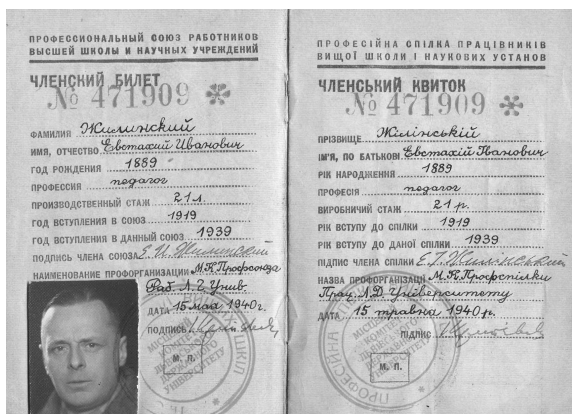 ПРОФЕССИОНАЛЬНЫЙ СОЮЗ РАБОТНИКОВ
ВЫСШЕЙ ШКОЛЫ И НАУЧНЫХ УЧРЕЖДЕНИЙ
ЧЛЕНСКИЙ БИЛЕТ
№ 471909
ФАМИЛИЯ Жилинский
ИМЯ, ОТЧЕСТВО Евстахий Иванович
ГОД РОЖДЕНИЯ 1889
ПРОФЕССИЯ педагог
ПРОИЗВОДСТВЕННЫЙ СТАЖ 21 л.
ГОД ВСТУПЛЕНИЯ В СОЮЗ 1919
ГОД ВСТУПЛЕНИЯ В ДАННЫЙ СОЮЗ 1939
ПОДПИСЬ ЧЛЕНА СОЮЗА Е. И. Жилинский
НАИМЕНОВАНИЕ ПРОФОРГАНИЗАЦИИ М.К. Профсоюза
Раб. Л. Г. Унив.
ДАТА 15 мая 1940 г.
ПОДПИСЬ
М. П.
ПРОФЕСІЙНА СПІЛКА ПРАЦІВНИКІВ
ВИЩОЇ ШКОЛИ І НАУКОВИХ УСТАНОВ
ЧЛЕНСЬКИЙ КВИТОК
№ 471909
ПРІЗВИЩЕ Жилінській
ІМ'Я, ПО БАТЬКОВІ Евстахій Іванович
РІК НАРОДЖЕННЯ 1889
ПРОФЕСІЯ педагог
ВИРОБНИЧИЙ СТАЖ 21 р.
РІК ВСТУПУ ДО СПІЛКИ 1919
РІК ВСТУПУ ДО ДАНОЇ СПІЛКИ 1939
ПІДПИС ЧЛЕНА СПІЛКИ Е. І. Жилінський
НАЗВА ПРОФОРГАНІЗАЦІЇ М.К. Профспілки
Прац. Л.Д. Університету
ДАТА 15 травня 1940 р.
ПІДПИС
М. П.